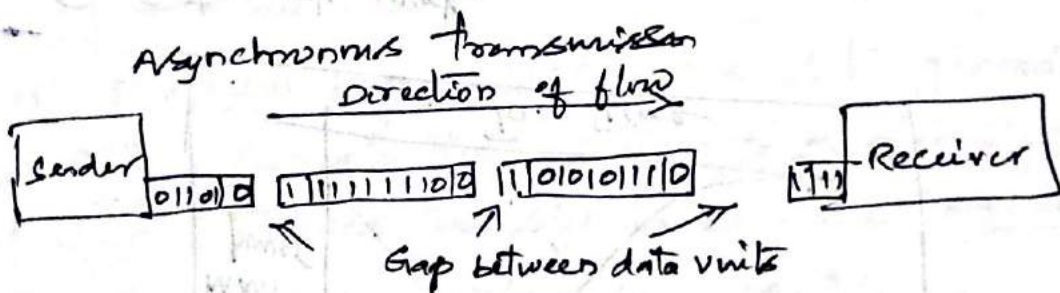 Asynchronous transmission
Direction of flow
Sender 01101 0 1 11111110 0 1 01010111 0 111 Receiver
Gap between data units